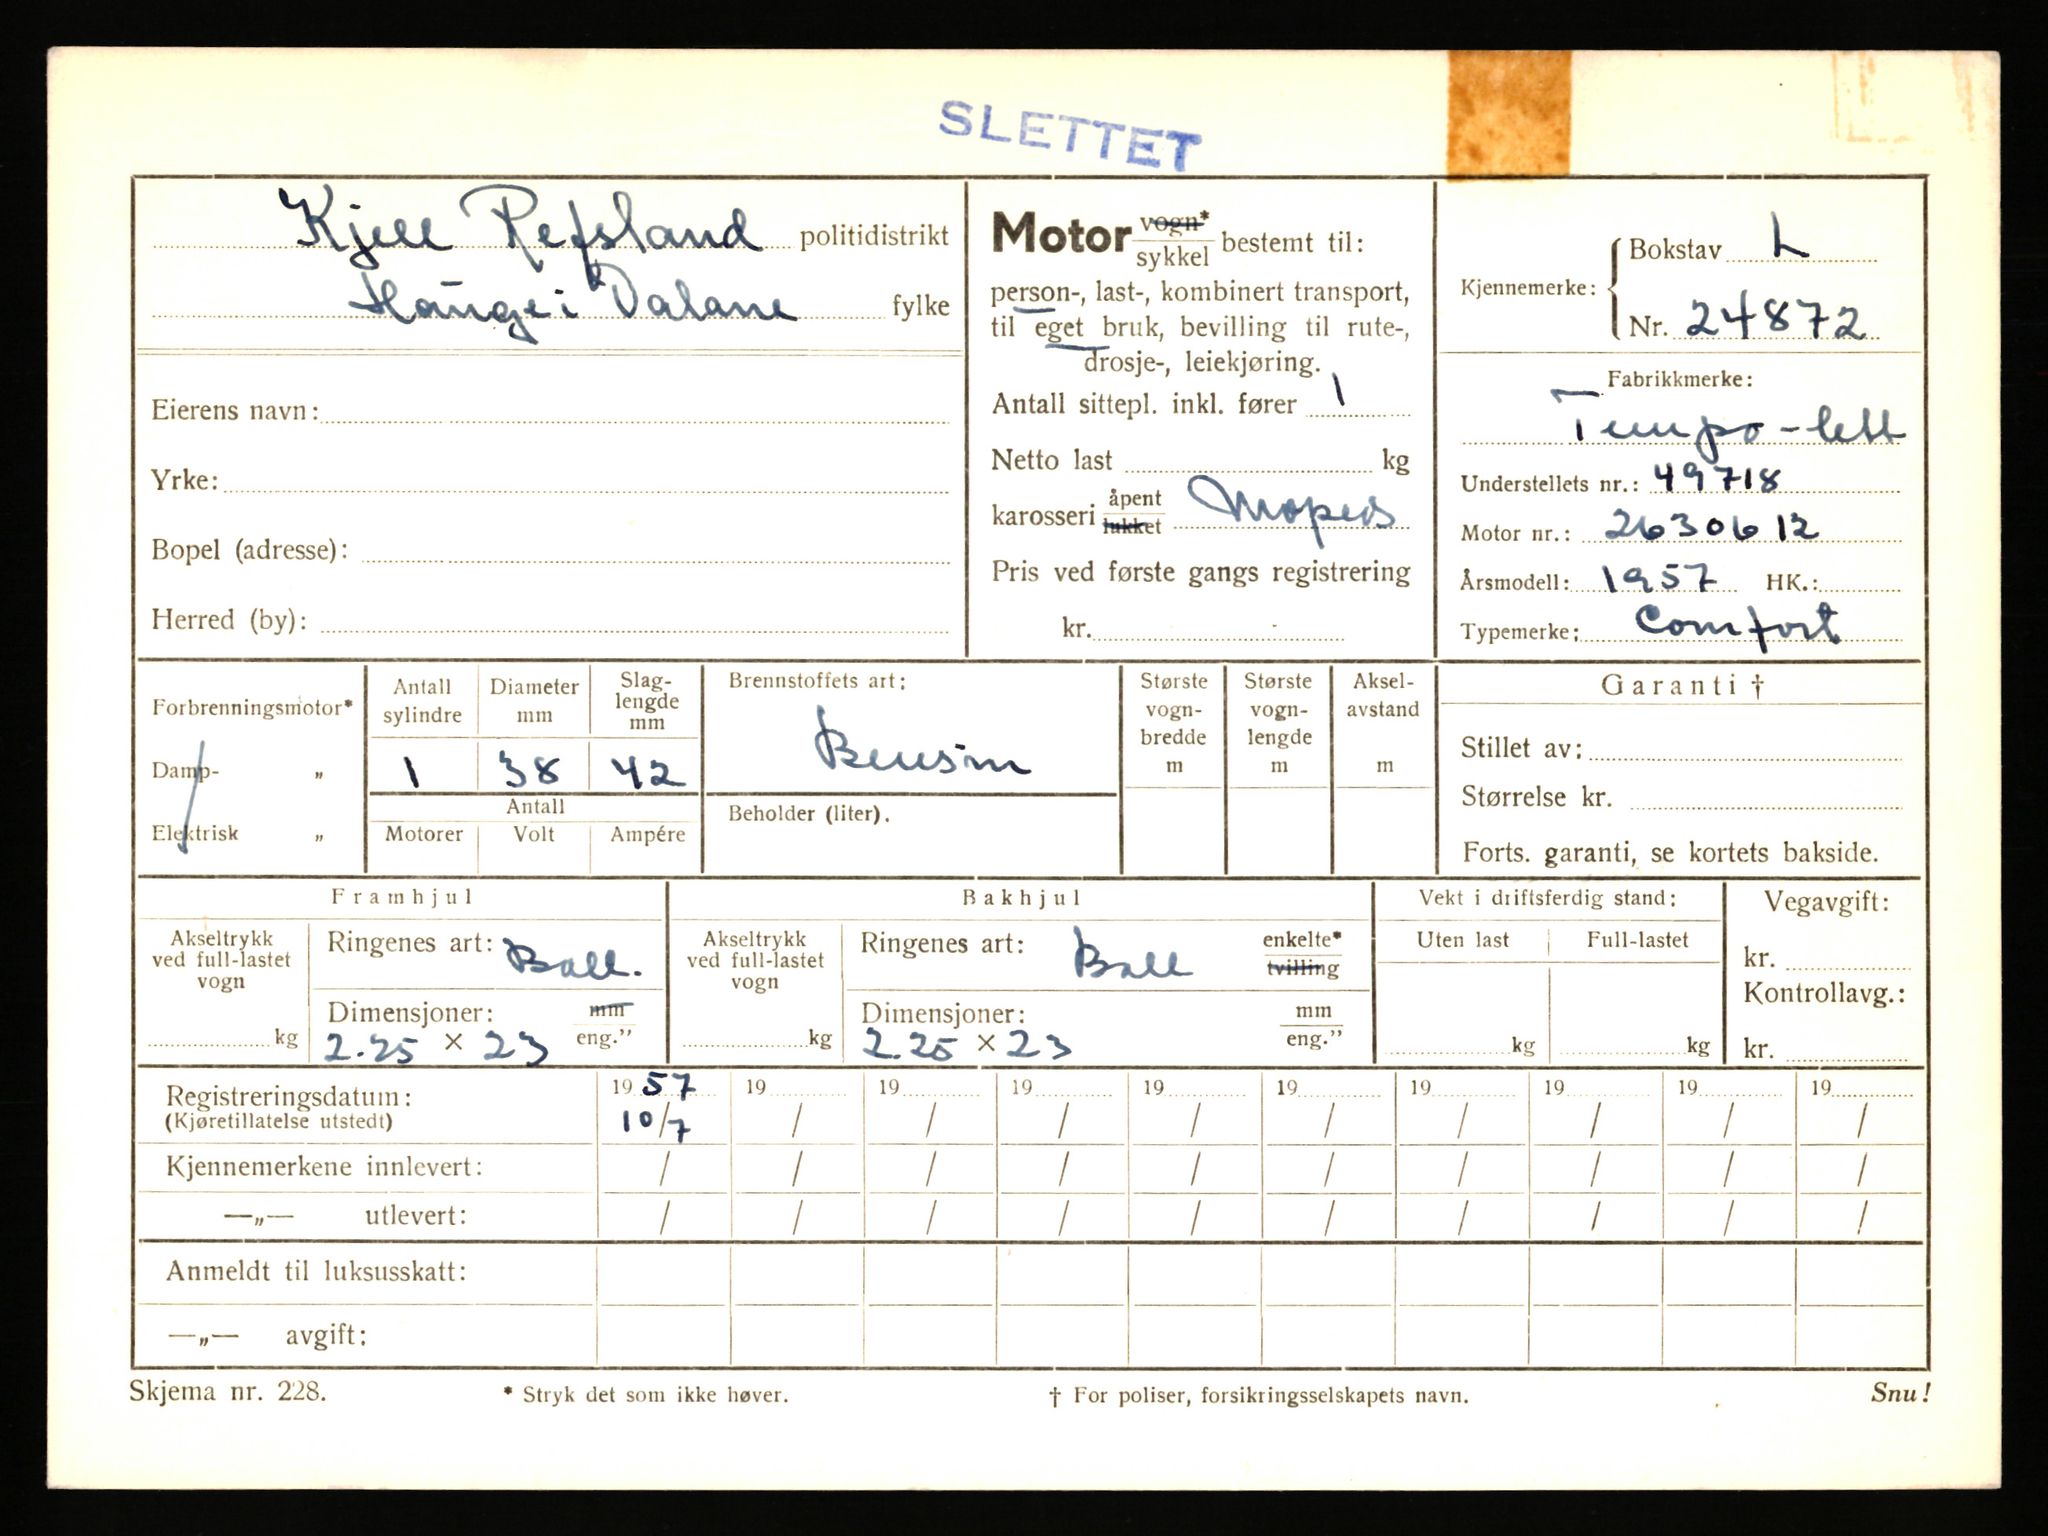 SLETTET
Kjell Refsland politidistrikt
Hauge i Dalane fylke
Eierens navn:
Yrke:
Bopel (adresse):
Herred (by):
Motor vogn* / sykkel bestemt til:
person-, last-, kombinert transport,
til eget bruk, bevilling til rute-,
drosje-, leiekjøring.
Antall sittepl. inkl. fører 1
Netto last kg
karosseri åpent / lukket Moped
Pris ved første gangs registrering
kr.
Kjennemerke: Bokstav L
Nr. 24872
Fabrikkmerke:
Tempo-lett
Understellets nr.: 49718
Motor nr.: 2630612
Årsmodell: 1957 HK.:
Typemerke: Comfort
Forbrenningsmotor*
Damp- „
Elektrisk „
Antall sylindre
Diameter mm
Slag-lengde mm
1 38 42
Antall
Motorer Volt Ampére
Brennstoffets art:
Bensin
Beholder (liter).
Største vogn-bredde m
Største vogn-lengde m
Aksel-avstand m
Garanti †
Stillet av:
Størrelse kr.
Forts. garanti, se kortets bakside.
Framhjul
Akseltrykk ved full-lastet vogn
kg
Ringenes art: Ball.
Dimensjoner: mm / eng.”
2.25 × 23
Bakhjul
Akseltrykk ved full-lastet vogn
kg
Ringenes art: Ball enkelte* / tvilling
Dimensjoner: mm / eng.”
2.25 × 23
Vekt i driftsferdig stand:
Uten last Full-lastet
kg kg
Vegavgift:
kr.
Kontrollavg.:
kr.
Registreringsdatum: 19 57 19 19 19 19 19 19 19 19 19
(Kjøretillatelse utstedt) 10/7 / / / / / / / / /
Kjennemerkene innlevert: / / / / / / / / / /
—„— utlevert: / / / / / / / / / /
Anmeldt til luksusskatt:
—„— avgift:
Skjema nr. 228. * Stryk det som ikke høver. † For poliser, forsikringsselskapets navn. Snu!